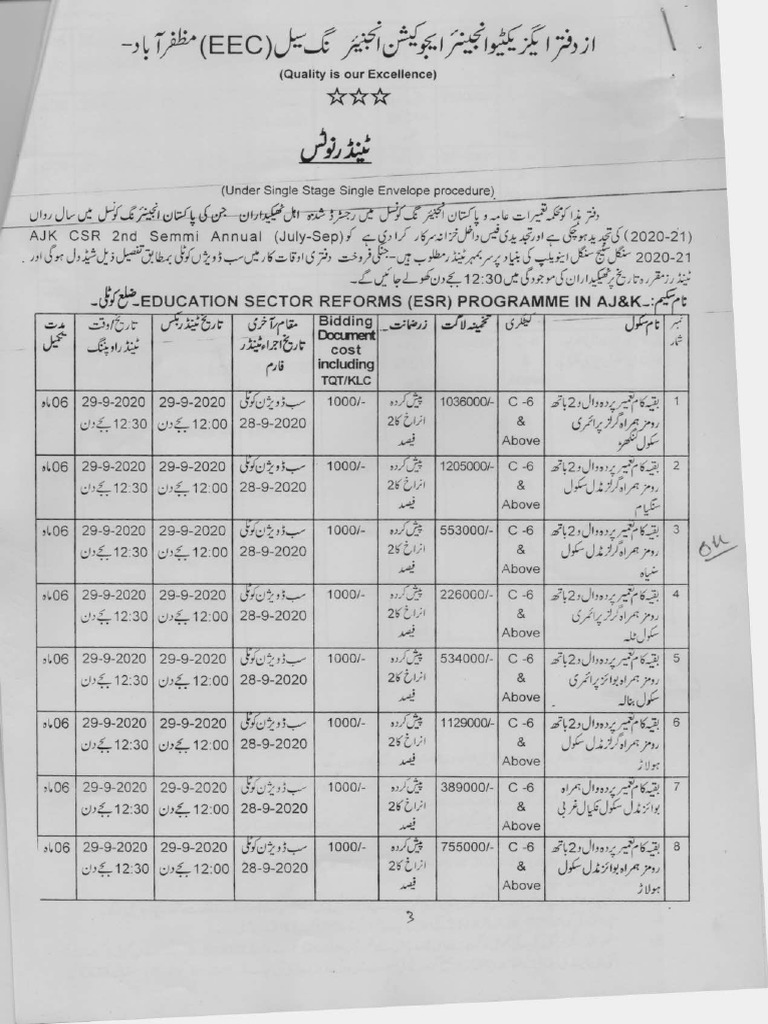 از دفتر ایگزیکٹیو انجینئر ایجوکیشن انجینئرنگ سیل (EEC) مظفرآباد۔
(Quality is our Excellence)
☆☆☆
ٹینڈر نوٹس
(Under Single Stage Single Envelope procedure)
دفتر ہذا کو محکمہ تعمیرات عامہ و پاکستان انجینئرنگ کونسل میں رجسٹرڈ شدہ اہل ٹھیکیداران جن کی پاکستان انجینئرنگ کونسل میں سال رواں
(2020-21) کی تجدید ہو چکی ہے اور تجدیدی فیس داخل خزانہ سرکار کرا دی ہے کو AJK CSR 2nd Semmi Annual (July-Sep)
2020-21 سنگل سٹیج سنگل اینویلپ کی بنیاد پر سر بمہر ٹینڈر مطلوب ہیں۔ جنکی فروخت دفتری اوقات کار میں سب ڈویژن کوٹلی بمطابق تفصیل ذیل شیڈول ہوگی اور
ٹینڈرز مقررہ تاریخ پر ٹھیکیداران کی موجودگی میں 12:30 بجے دن کھولے جائیں گے۔
نام سکیم:۔ EDUCATION SECTOR REFORMS (ESR) PROGRAMME IN AJ&K۔ ضلع کوٹلی۔
نمبر شمار نام سکول کیٹگری تخمینہ لاگت زرضمانت Bidding Document cost including TQT/KLC مقام/آخری تاریخ اجراء ٹینڈر فارم تاریخ ٹینڈر بکس تاریخ/وقت ٹینڈر اوپننگ مدت تکمیل
1 بقیہ کام تعمیر پردہ وال و 2 باتھ رومز ہمراہ گرلز پرائمری سکول C -6 & Above 1036000/- پیش کردہ انراخ کا 2 فیصد 1000/- سب ڈویژن کوٹلی 28-9-2020 29-9-2020 12:00 بجے دن 29-9-2020 12:30 بجے دن 06 ماہ
2 بقیہ کام تعمیر پردہ وال و 2 باتھ رومز ہمراہ گرلز مڈل سکول C -6 & Above 1205000/- پیش کردہ انراخ کا 2 فیصد 1000/- سب ڈویژن کوٹلی 28-9-2020 29-9-2020 12:00 بجے دن 29-9-2020 12:30 بجے دن 06 ماہ
3 بقیہ کام تعمیر پردہ وال و 2 باتھ رومز ہمراہ گرلز مڈل سکول C -6 & Above 553000/- پیش کردہ انراخ کا 2 فیصد 1000/- سب ڈویژن کوٹلی 28-9-2020 29-9-2020 12:00 بجے دن 29-9-2020 12:30 بجے دن 06 ماہ
4 بقیہ کام تعمیر پردہ وال و 2 باتھ رومز ہمراہ گرلز پرائمری سکول C -6 & Above 226000/- پیش کردہ انراخ کا 2 فیصد 1000/- سب ڈویژن کوٹلی 28-9-2020 29-9-2020 12:00 بجے دن 29-9-2020 12:30 بجے دن 06 ماہ
5 بقیہ کام تعمیر پردہ وال و 2 باتھ رومز ہمراہ بوائز پرائمری سکول C -6 & Above 534000/- پیش کردہ انراخ کا 2 فیصد 1000/- سب ڈویژن کوٹلی 28-9-2020 29-9-2020 12:00 بجے دن 29-9-2020 12:30 بجے دن 06 ماہ
6 بقیہ کام تعمیر پردہ وال و 2 باتھ رومز ہمراہ گرلز مڈل سکول ہولاڑ C -6 & Above 1129000/- پیش کردہ انراخ کا 2 فیصد 1000/- سب ڈویژن کوٹلی 28-9-2020 29-9-2020 12:00 بجے دن 29-9-2020 12:30 بجے دن 06 ماہ
7 بقیہ کام تعمیر پردہ وال ہمراہ بوائز مڈل سکول نکیال غربی C -6 & Above 389000/- پیش کردہ انراخ کا 2 فیصد 1000/- سب ڈویژن کوٹلی 28-9-2020 29-9-2020 12:00 بجے دن 29-9-2020 12:30 بجے دن 06 ماہ
8 بقیہ کام تعمیر پردہ وال و 2 باتھ رومز ہمراہ بوائز مڈل سکول ہولاڑ C -6 & Above 755000/- پیش کردہ انراخ کا 2 فیصد 1000/- سب ڈویژن کوٹلی 28-9-2020 29-9-2020 12:00 بجے دن 29-9-2020 12:30 بجے دن 06 ماہ
3